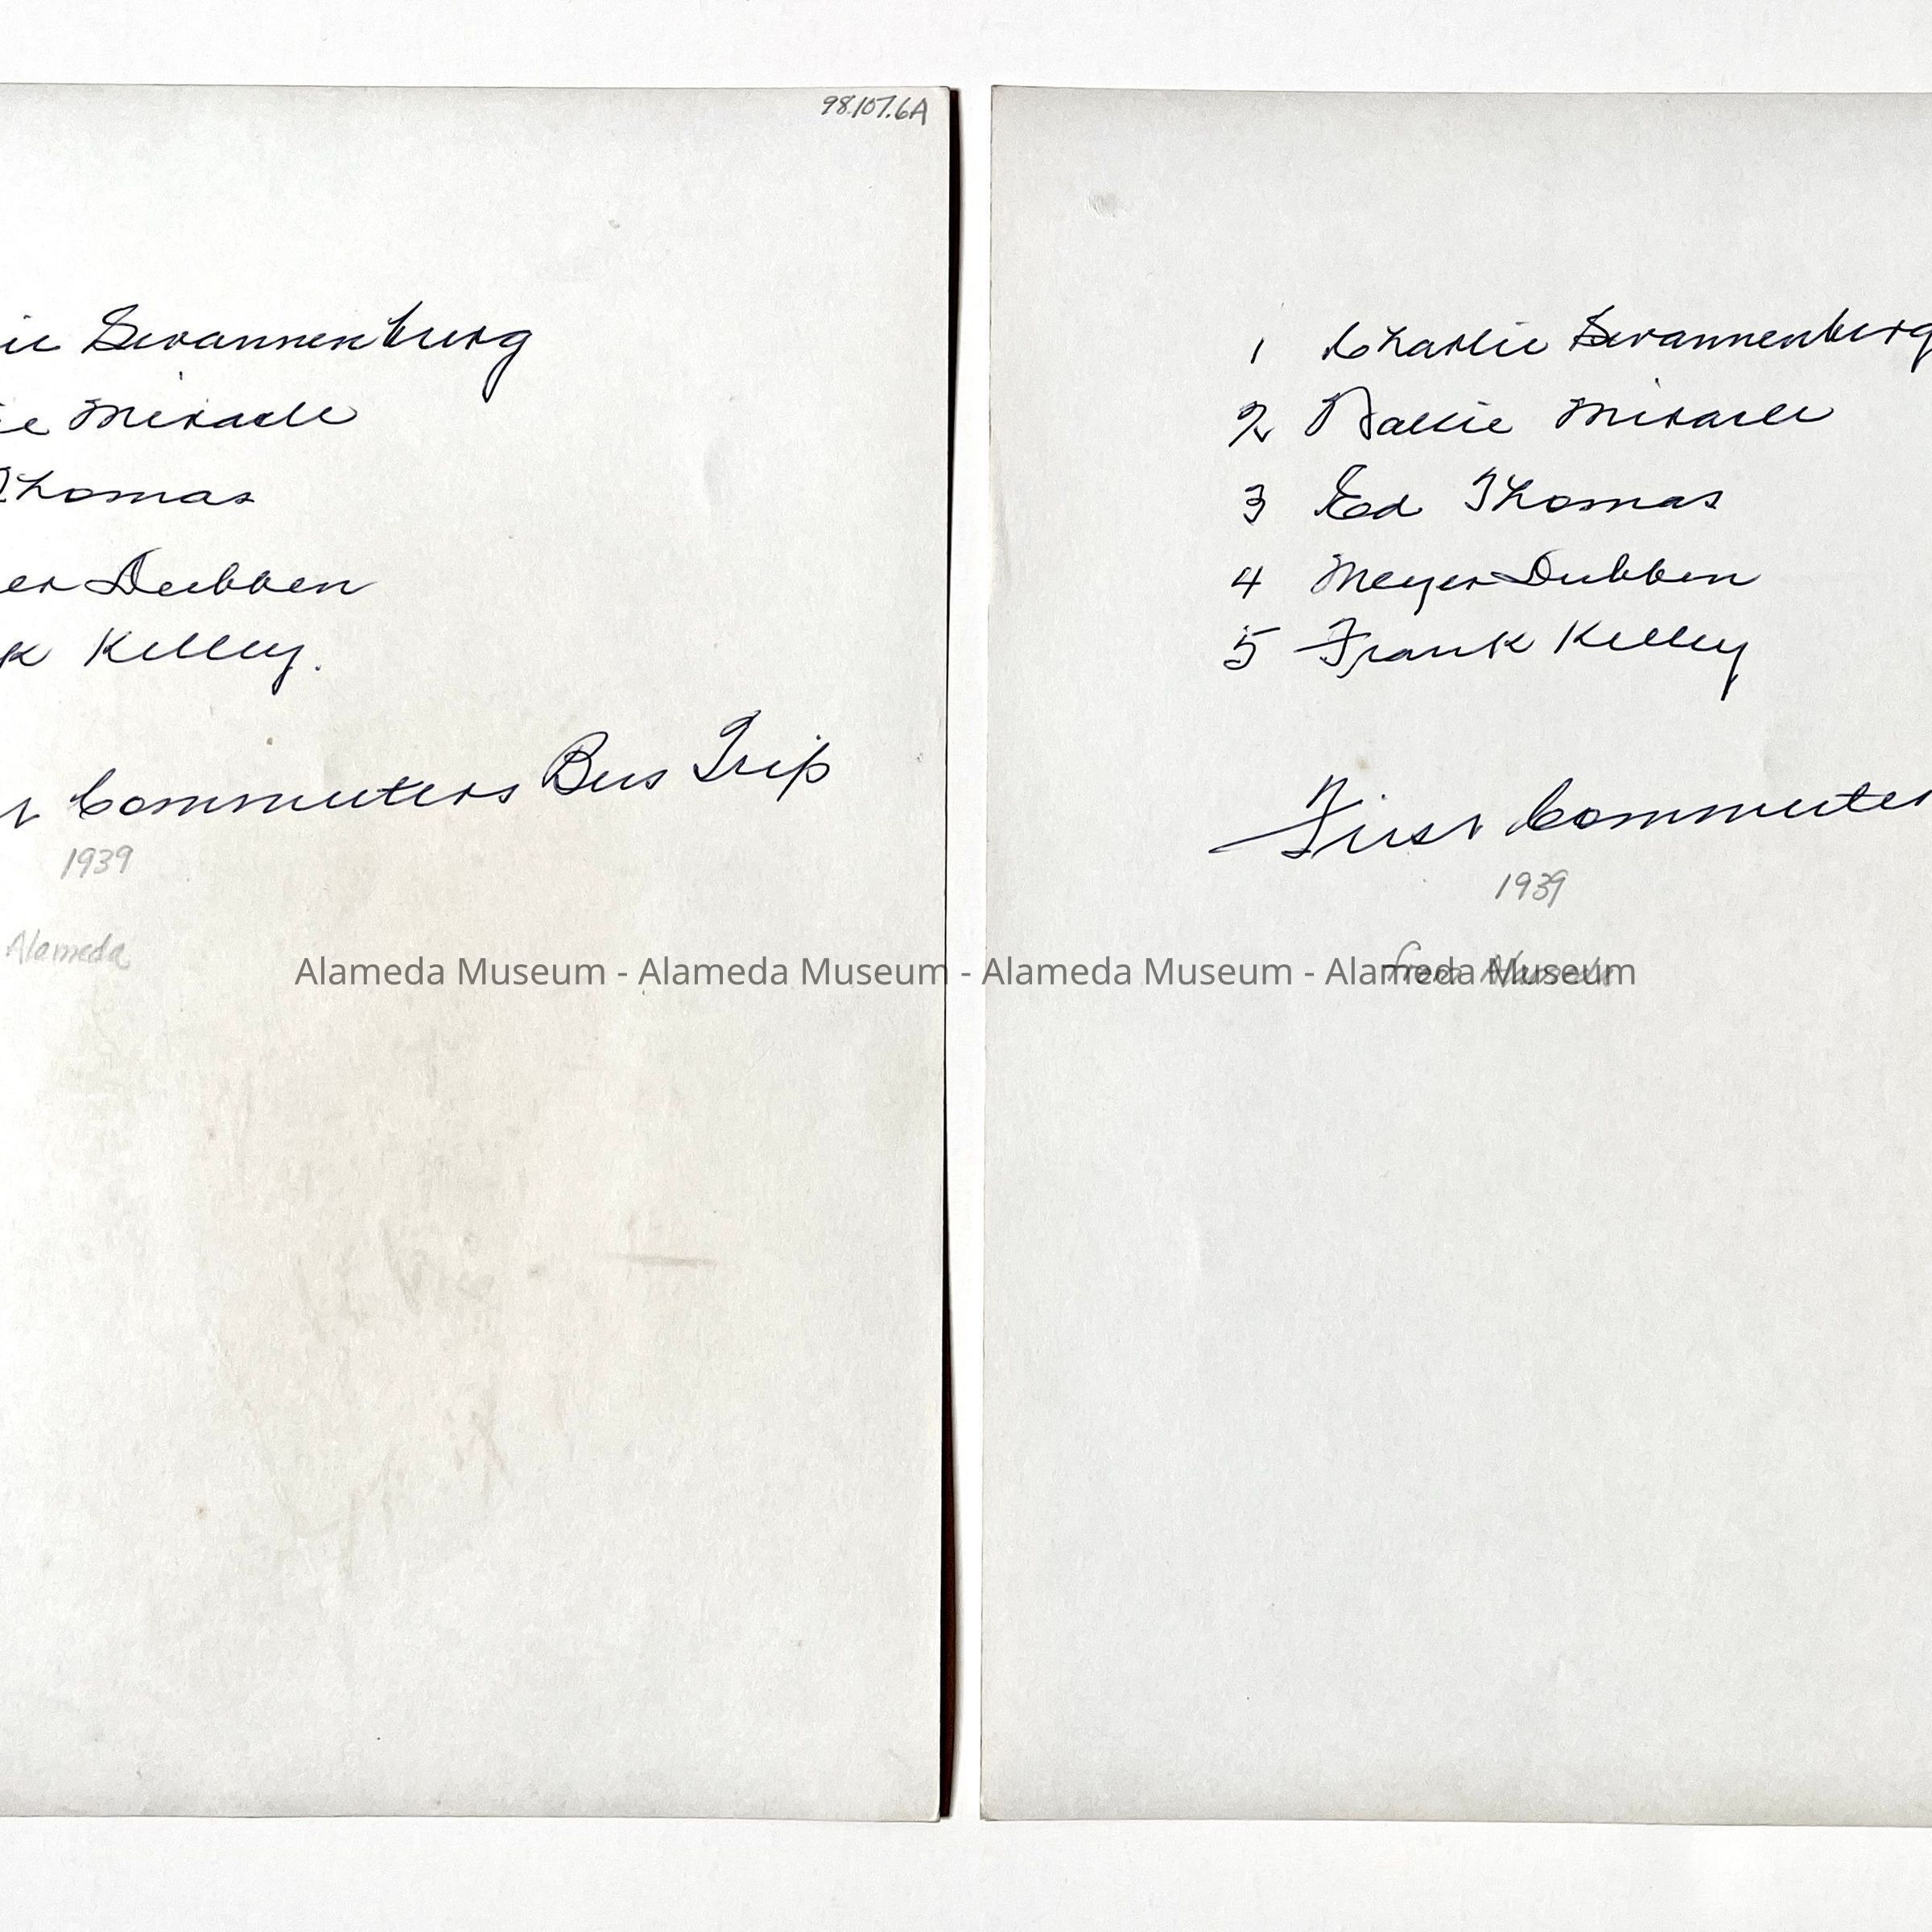 98.107.6A
ie Swannenburg
ie Miracle
Thomas
er Dubben
k Kelley.
Commuters Bus Trip
1939
Alameda
1 Charlie Swannenberg
2 Miracle
3 Ed Thomas
4 Meyer Dubben
5 Frank Kelley
First Commuter
1939
from Alameda
Alameda Museum - Alameda Museum - Alameda Museum - Alameda Museum